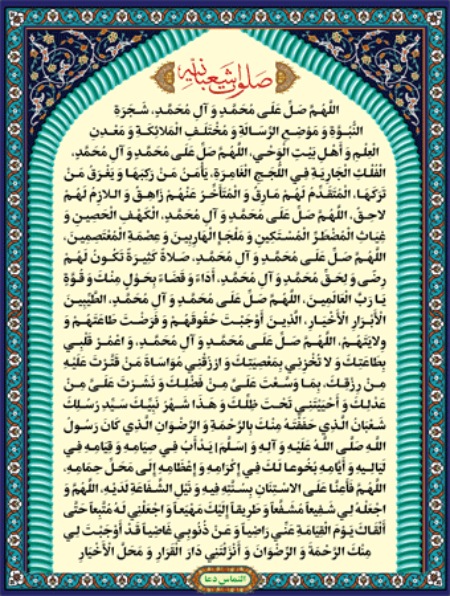 صلوات شعبانیه
اللَّهُمَّ صَلِّ عَلَى مُحَمَّدٍ وَ آلِ مُحَمَّدٍ، شَجَرَةِ
النُّبُوَّةِ وَ مَوْضِعِ الرِّسَالَةِ وَ مُخْتَلَفِ الْمَلائِكَةِ وَ مَعْدِنِ
الْعِلْمِ وَ أَهْلِ بَيْتِ الْوَحْيِ، اللَّهُمَّ صَلِّ عَلَى مُحَمَّدٍ وَ آلِ مُحَمَّدٍ،
الْفُلْكِ الْجَارِيَةِ فِي اللُّجَجِ الْغَامِرَةِ، يَأْمَنُ مَنْ رَكِبَهَا وَ يَغْرَقُ مَنْ
تَرَكَهَا، الْمُتَقَدِّمُ لَهُمْ مَارِقٌ وَ الْمُتَأَخِّرُ عَنْهُمْ زَاهِقٌ وَ اللازِمُ لَهُمْ
لاحِقٌ، اللَّهُمَّ صَلِّ عَلَى مُحَمَّدٍ وَ آلِ مُحَمَّدٍ، الْكَهْفِ الْحَصِينِ وَ
غِيَاثِ الْمُضْطَرِّ الْمُسْتَكِينِ وَ مَلْجَإِ الْهَارِبِينَ وَ عِصْمَةِ الْمُعْتَصِمِينَ،
اللَّهُمَّ صَلِّ عَلَى مُحَمَّدٍ وَ آلِ مُحَمَّدٍ، صَلاةً كَثِيرَةً تَكُونُ لَهُمْ
رِضًى وَ لِحَقِّ مُحَمَّدٍ وَ آلِ مُحَمَّدٍ، أَدَاءً وَ قَضَاءً بِحَوْلٍ مِنْكَ وَ قُوَّةٍ
يَا رَبَّ الْعَالَمِينَ، اللَّهُمَّ صَلِّ عَلَى مُحَمَّدٍ وَ آلِ مُحَمَّدٍ، الطَّيِّبِينَ
الْأَبْرَارِ الْأَخْيَارِ، الَّذِينَ أَوْجَبْتَ حُقُوقَهُمْ وَ فَرَضْتَ طَاعَتَهُمْ وَ
وِلايَتَهُمْ، اللَّهُمَّ صَلِّ عَلَى مُحَمَّدٍ وَ آلِ مُحَمَّدٍ، وَ اعْمُرْ قَلْبِي
بِطَاعَتِكَ وَ لا تُخْزِنِي بِمَعْصِيَتِكَ وَ ارْزُقْنِي مُوَاسَاةَ مَنْ قَتَّرْتَ عَلَيْهِ
مِنْ رِزْقِكَ، بِمَا وَسَّعْتَ عَلَيَّ مِنْ فَضْلِكَ وَ نَشَرْتَ عَلَيَّ مِنْ
عَدْلِكَ وَ أَحْيَيْتَنِي تَحْتَ ظِلِّكَ وَ هَذَا شَهْرُ نَبِيِّكَ سَيِّدِ رُسُلِكَ
شَعْبَانُ الَّذِي حَفَفْتَهُ مِنْكَ بِالرَّحْمَةِ وَ الرِّضْوَانِ الَّذِي كَانَ رَسُولُ
اللَّهِ صَلَّى اللَّهُ عَلَيْهِ وَ آلِهِ وَ [سَلَّمَ] يَدْأَبُ فِي صِيَامِهِ وَ قِيَامِهِ فِي
لَيَالِيهِ وَ أَيَّامِهِ بُخُوعا لَكَ فِي إِكْرَامِهِ وَ إِعْظَامِهِ إِلَى مَحَلِّ حِمَامِهِ،
اللَّهُمَّ فَأَعِنَّا عَلَى الاسْتِنَانِ بِسُنَّتِهِ فِيهِ وَ نَيْلِ الشَّفَاعَةِ لَدَيْهِ، اللَّهُمَّ وَ
اجْعَلْهُ لِي شَفِيعاً مُشَفَّعاً وَ طَرِيقاً إِلَيْكَ مَهْيَعاً وَ اجْعَلْنِي لَهُ مُتَّبِعاً حَتَّى
أَلْقَاكَ يَوْمَ الْقِيَامَةِ عَنِّي رَاضِياً وَ عَنْ ذُنُوبِي غَاضِياً قَدْ أَوْجَبْتَ لِي
مِنْكَ الرَّحْمَةَ وَ الرِّضْوَانَ وَ أَنْزَلْتَنِي دَارَ الْقَرَارِ وَ مَحَلَّ الْأَخْيَارِ
التماس دعا